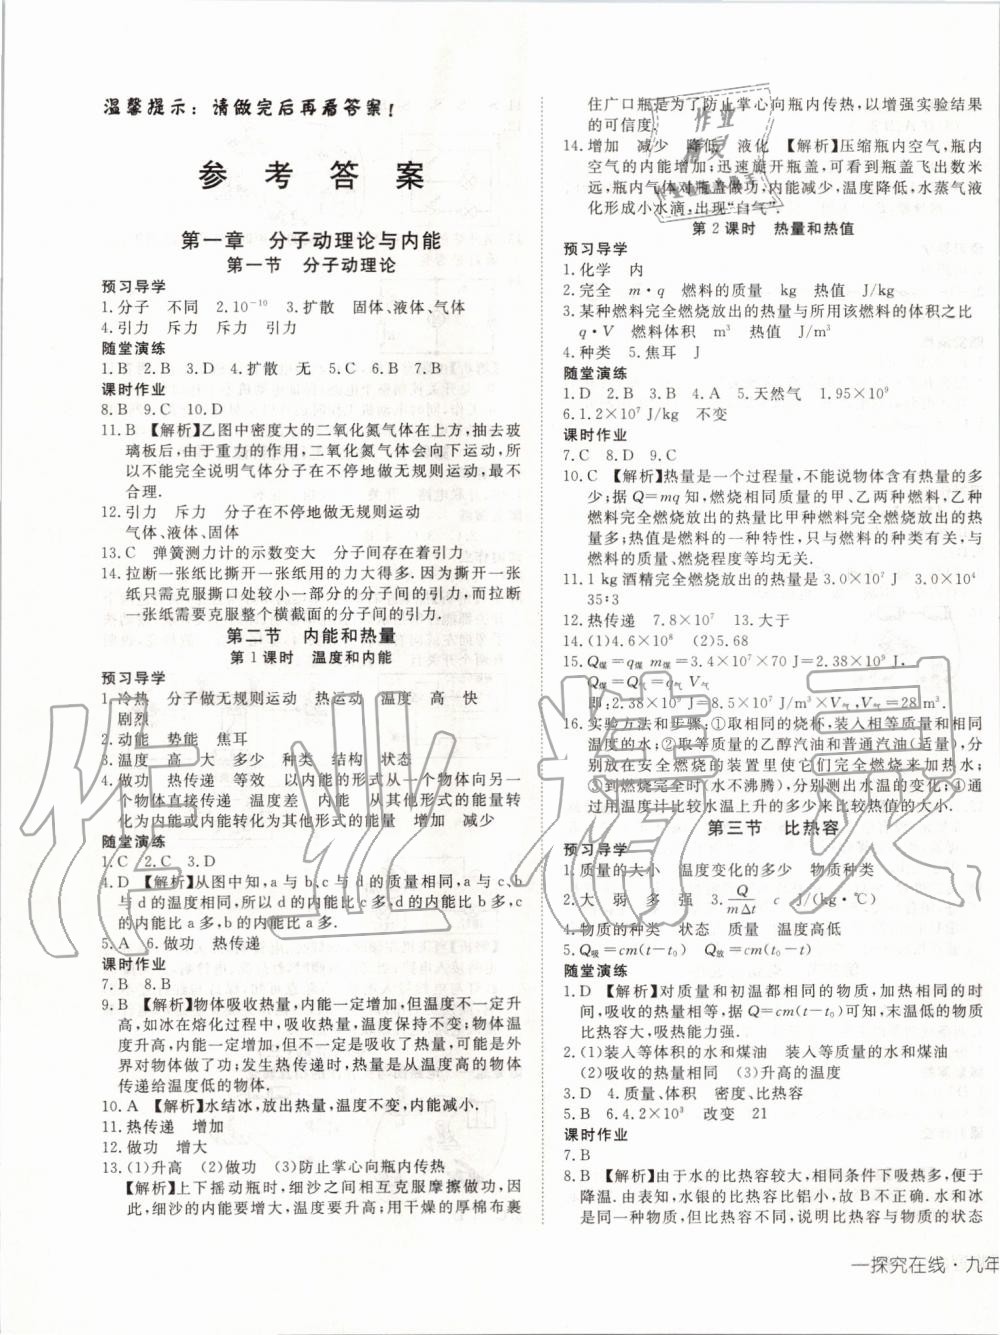 温馨提示：请做完后再看答案！
参考答案
第一章 分子动理论与内能
第一节 分子动理论
预习导学
1.分子 不同 2.10⁻¹⁰ 3.扩散 固体、液体、气体
4.引力 斥力 斥力 引力
随堂演练
1.B 2.B 3.D 4.扩散 无 5.C 6.B 7.B
课时作业
8.B 9.C 10.D
11.B 【解析】乙图中密度大的二氧化氮气体在上方,抽去玻
璃板后,由于重力的作用,二氧化氮气体会向下运动,所
以不能完全说明气体分子在不停地做无规则运动,最不
合理.
12.引力 斥力 分子在不停地做无规则运动
气体、液体、固体
13.C 弹簧测力计的示数变大 分子间存在着引力
14.拉断一张纸比撕开一张纸用的力大得多.因为撕开一张
纸只需克服撕口处较小一部分的分子间的引力,而拉断
一张纸需要克服整个横截面的分子间的引力.
第二节 内能和热量
第1课时 温度和内能
预习导学
1.冷热 分子做无规则运动 热运动 温度 高 快
剧烈
2.动能 势能 焦耳
3.温度 高 大 多少 种类 结构 状态
4.做功 热传递 等效 以内能的形式从一个物体向另一
个物体直接传递 温度差 内能 从其他形式的能量转
化为内能或内能转化为其他形式的能量 增加 减少
随堂演练
1.C 2.C 3.D
4.D 【解析】从图中知,a与b、c与d的质量相同,a与c、b
与d的温度相同,所以d的内能比c多,d的内能比b多,c
的内能比a多,b的内能比a多.
5.A 6.做功 热传递
课时作业
7.B 8.B
9.B 【解析】物体吸收热量,内能一定增加,但温度不一定升
高,如冰在熔化过程中,吸收热量,温度保持不变;物体温
度升高,内能一定增加,但不一定是吸收了热量,可能是外
界对物体做了功;发生热传递时,热量是由温度高的物体
传递给温度低的物体.
10.A 【解析】水结冰,放出热量,温度不变,内能减小.
11.热传递 增加
12.做功 增大
13.(1)升高 (2)做功 (3)防止掌心向瓶内传热
【解析】上下摇动瓶时,细沙之间相互克服摩擦做功,因
此,细沙的内能要增大,温度要升高;用干燥的厚棉布裹
住广口瓶是为了防止掌心向瓶内传热,以增强实验结果
的可信度.
14.增加 减少 降低 液化 【解析】压缩瓶内空气,瓶内
空气的内能增加;迅速旋开瓶盖,可看到瓶盖飞出数米
远,瓶内气体对瓶盖做功,内能减少,温度降低,水蒸气液
化形成小水滴,出现“白气”.
第2课时 热量和热值
预习导学
1.化学 内
2.完全 m·q 燃料的质量 kg 热值 J/kg
3.某种燃料完全燃烧放出的热量与所用该燃料的体积之比
q·V 燃料体积 m³ 热值 J/m³
4.种类 5.焦耳 J
随堂演练
1.D 2.B 3.B 4.A 5.天然气 1.95×10⁹
6.1.2×10⁷ J/kg 不变
课时作业
7.C 8.D 9.C
10.C 【解析】热量是一个过程量,不能说物体含有热量的多
少;据Q=mq知,燃烧相同质量的甲、乙两种燃料,乙种
燃料完全燃烧放出的热量比甲种燃料完全燃烧放出的热
量多;热值是燃料的一种特性,只与燃料的种类有关,与
燃料的质量、燃烧程度等均无关.
11.1 kg酒精完全燃烧放出的热量是3.0×10⁷J 3.0×10⁴
35∶3
12.热传递 7.8×10⁷ 13.大于
14.(1)4.6×10⁸ (2)5.68
15.Q煤=q煤 m煤=3.4×10⁷×70 J=2.38×10⁹ J,
Q煤=Q气=q气V气
即:2.38×10⁹J=8.5×10⁷J/m³×V气,V气=28 m³.
16.实验方法和步骤:①取相同的烧杯,装入相等质量和相同
温度的水;②取等质量的乙醇汽油和普通汽油(适量),分
别放在安全燃烧的装置里使它们完全燃烧来加热水;
③到燃烧完全时(水不沸腾),分别测出水温的变化;④通
过用温度计比较水温上升的多少来比较热值的大小.
第三节 比热容
预习导学
1.质量的大小 温度变化的多少 物质种类
2.大 弱 多 强 3.Q/mΔt c J/(kg·℃)
4.物质的种类 状态 质量 温度高低
5.Q吸=cm(t−t₀) Q放=cm(t₀−t)
随堂演练
1.D 【解析】对质量和初温都相同的物质,加热相同的时
间,吸收的热量相等,据Q=cm(t−t₀)可知,末温低的物质
比热容大,吸热能力强.
2.(1)装入等体积的水和煤油 装入等质量的水和煤油
(2)吸收的热量相同 (3)升高的温度
3.D 4.质量、体积 密度、比热容
5.B 6.4.2×10³ 改变 21
课时作业
7.B
8.B 【解析】由于水的比热容较大,相同条件下吸热多,便于
降温.由表知,水银的比热容比铝小,故B不正确.水和冰
是同一种物质,但比热容不同,说明比热容与物质的状态
一探究在线·九年
作业精灵